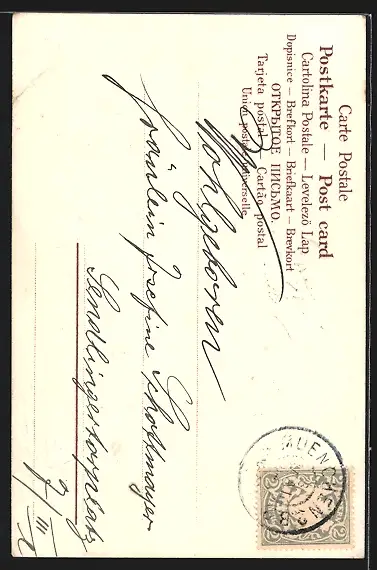 Carte Postale
Postkarte — Post card
Cartolina Postale — Levelező Lap
Dopisnice — Brefkort — Briefkaart — Brevkort
ОТКРЫТОЕ ПИСЬМО.
Tarjeta postal — Cartão postal
Union postale universelle
Wohlgeboren
Fräulein Josefine Schottmayer
Sendlingertorplatz
MUENCHEN